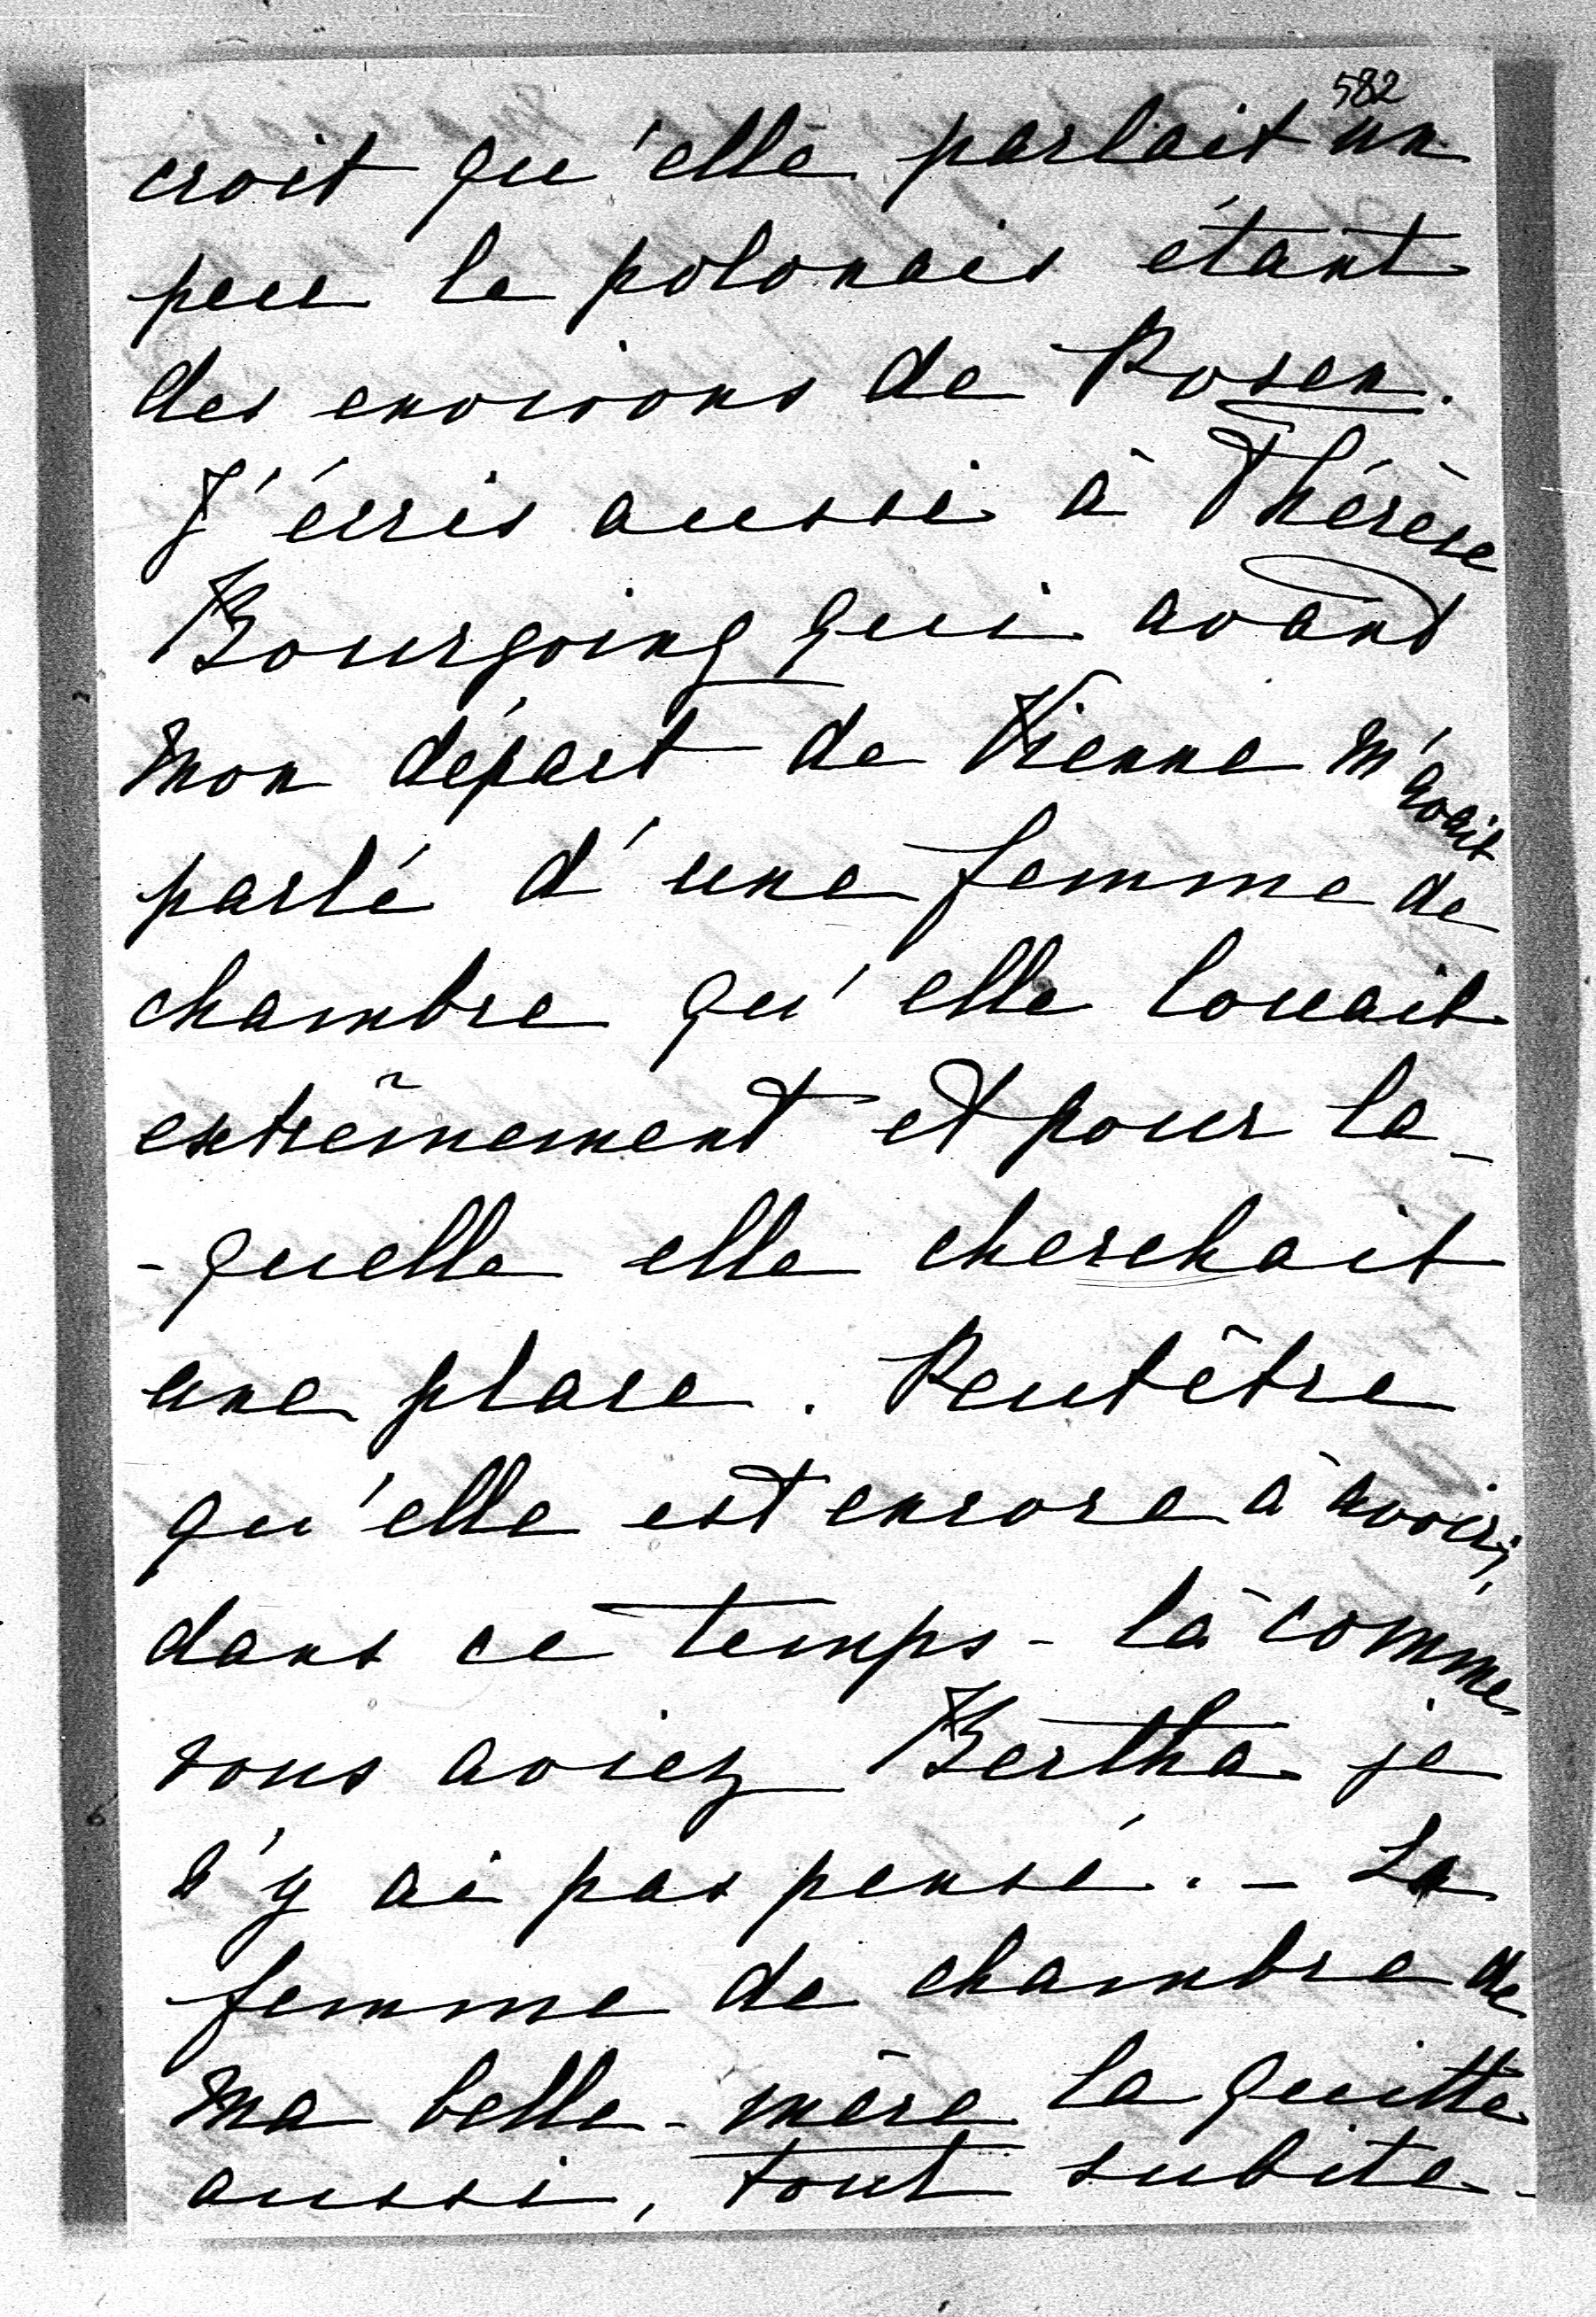 582
croit qu'elle parlait un
peu le polonais étant
des environs de Posen.
J'écris aussi à Thérèse
Bourgoing qui avant
mon départ de Vienne m'avait
parlé d'une femme de
chambre qu'elle louait
extrêmement et pour la-
-quelle elle cherchait
une place. Peutêtre
qu'elle est encore à avoir;
dans ce temps-là comme
vous aviez Bertha je
n'y ai pas pensé. - La
femme de chambre de
ma belle-mère la quitte
aussi, tout subite-